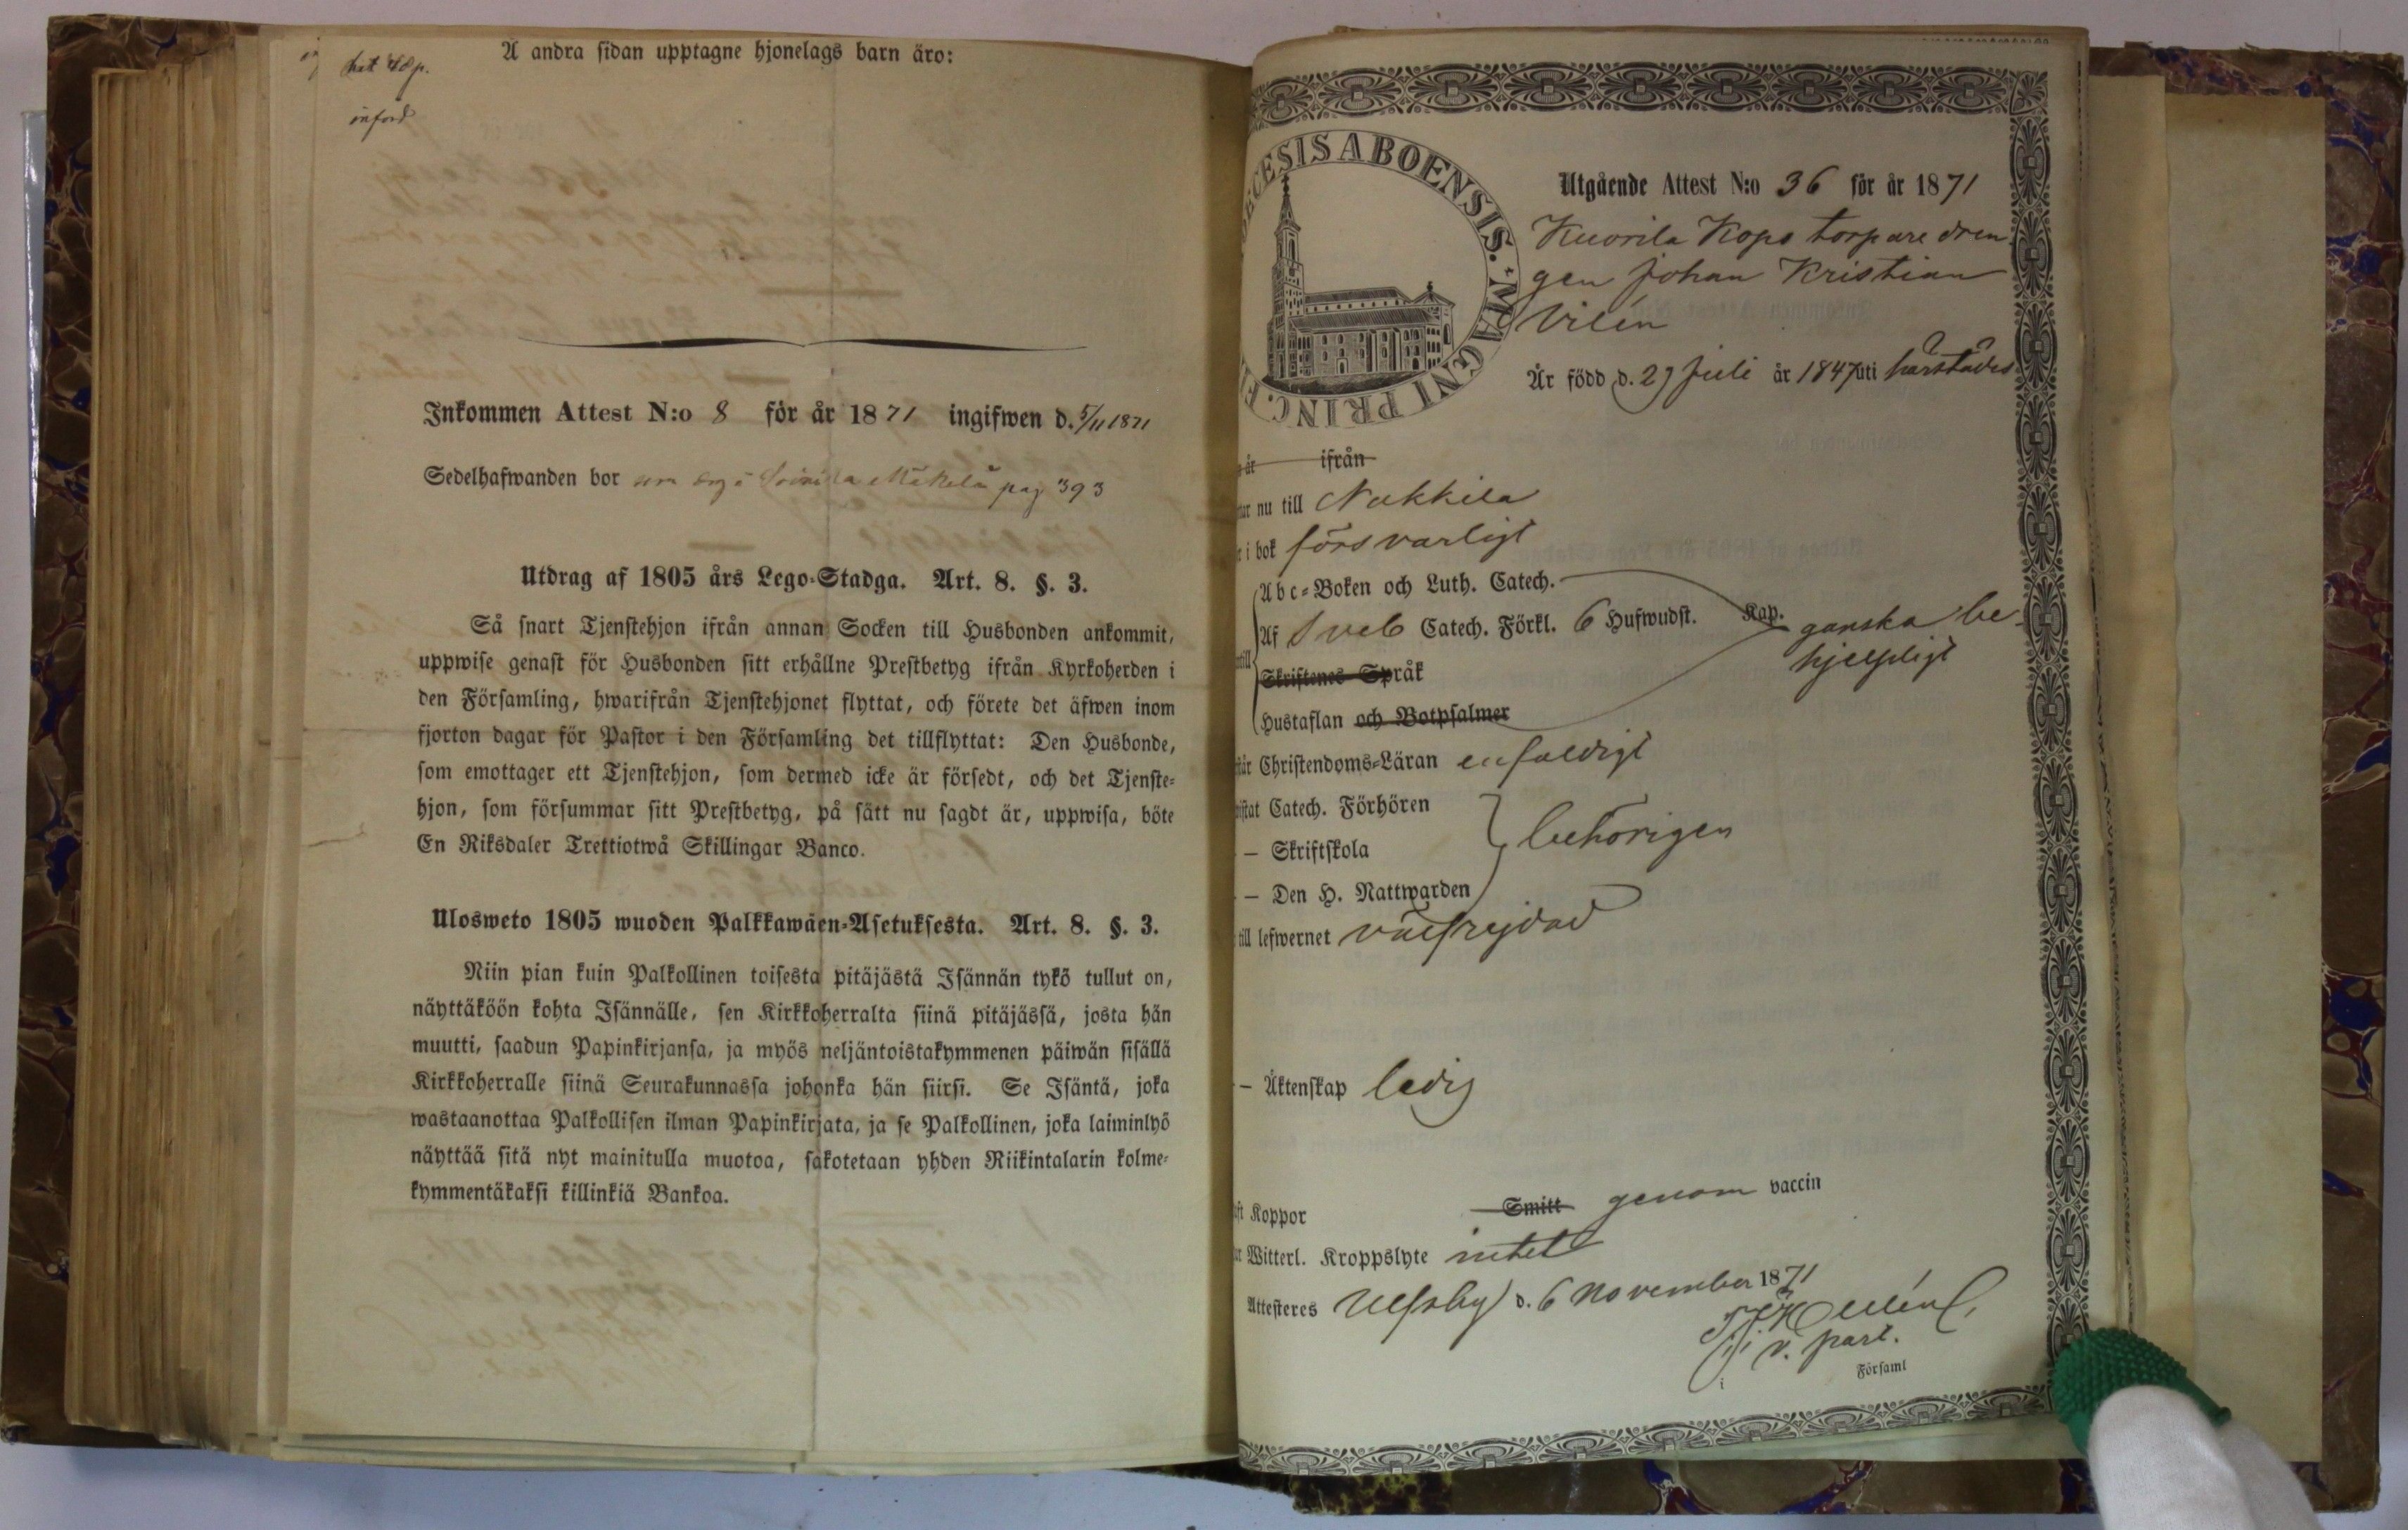 bet 48 p.
införd
Å andra sidan upptagne hjonelags barn äro:
Inkommen Attest N:o 8 för år 1871 ingifwen d. 5/11 1871
Sedelhafwanden bor Mäkelä pag 393
Utdrag af 1805 års Lego-Stadga. Art. 8. §. 3.
Så snart Tjenstehjon ifrån annan Socken till Husbonden ankommit,
uppwise genast för Husbonden sitt erhållne Prestbetyg ifrån Kyrkoherden i
den Församling, hwarifrån Tjenstehjonet flyttat, och förete det äfwen inom
fjorton dagar för Pastor i den Församling det tillflyttat: Den Husbonde,
som emottager ett Tjenstehjon, som dermed icke är försedt, och det Tjenste-
hjon, som försummar sitt Prestbetyg, på sätt nu sagdt är, uppwisa, böte
En Riksdaler Trettiotwå Skillingar Banco.
Ulosweto 1805 wuoden Palkkawäen-Asetuksesta. Art. 8. §. 3.
Niin pian kuin Palkollinen toisesta pitäjästä Isännän tykö tullut on,
näyttäköön kohta Isännälle, sen Kirkkoherralta siinä pitäjässä, josta hän
muutti, saadun Papinkirjansa, ja myös neljäntoistakymmenen päiwän sisällä
Kirkkoherralle siinä Seurakunnassa johonka hän siirsi. Se Isäntä, joka
wastaanottaa Palkollisen ilman Papinkirjata, ja se Palkollinen, joka laiminlyö
näyttää sitä nyt mainitulla muotoa, sakotetaan yhden Riikintalarin kolme-
kymmentäkaksi killinkiä Bankoa.
ECESIS ABOENSIS. MAGNI PRINC. F
Utgående Attest N:o 36 för år 1871
Kuorila Kops torpare dren
gen Johan Kristian
Vilén
Är född d. 29 Juli år 1847 uti härstädes
år ifrån
nu till Nakkila
i bok försvarligt
Abc-Boken och Luth. Catech.
Af Sveb Catech. Förkl. 6 Hufwudst. Kap. ganska be-
hjelpligt
Skriftenes Språk
Hustaflan och Botpsalmer
Christendoms-Läran enfaldigt
Catech. Förhören
— Skriftskola behörigen
— Den H. Nattwarden
till lefwernet välfrejdad
— Äktenskap ledig
Koppor Smitt genom vaccin
Witterl. Kroppslyte intet
Attesteres Ulfsby d. 6 November 1871
v. past.
i Församl